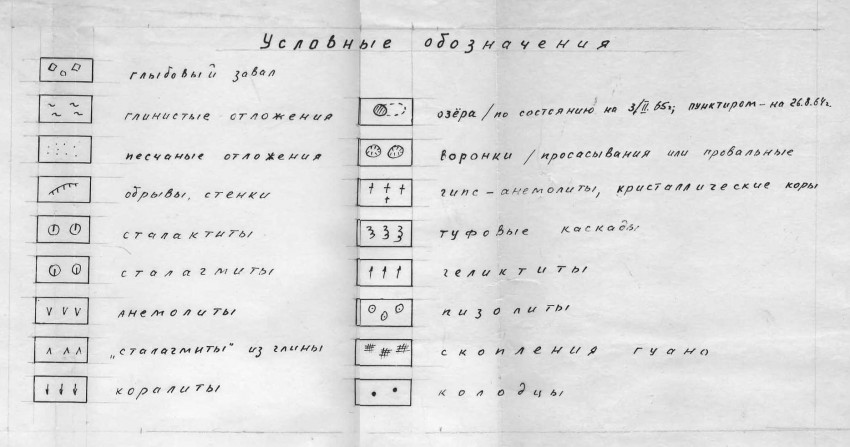 Условные обозначения
глыбовый завал
глинистые отложения
песчаные отложения
обрывы, стенки
сталактиты
сталагмиты
анемолиты
„сталагмиты" из глины
коралиты
озёра /по состоянию на 3/II.65г; пунктиром – на 26.8.64г.
воронки /просасывания или провальные
гипс – анемолиты, кристаллические коры
туфовые каскады
геликтиты
пизолиты
скопления гуано
колодцы